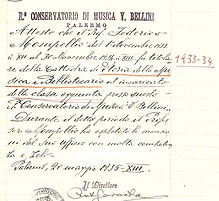 R.° CONSERVATORIO DI MUSICA V. BELLINI
PALERMO
Attesto che il Prof. Federico
Mompellio dal 1° novembre 1933
XII al 30 novembre 1934 - XIII fu titolare
della Cattedra di Storia della Mu-
sica e Bibliotecario ed incaricato
della classe presso questo
R. Conservatorio di Musica V. Bellini.
Durante il detto periodo il Prof.
Mompellio ha espletato le mansio-
ni del Suo Ufficio con molta competen-
za e zelo.
Palermo, 21 maggio 1935-XIII
Il Direttore
1933-34